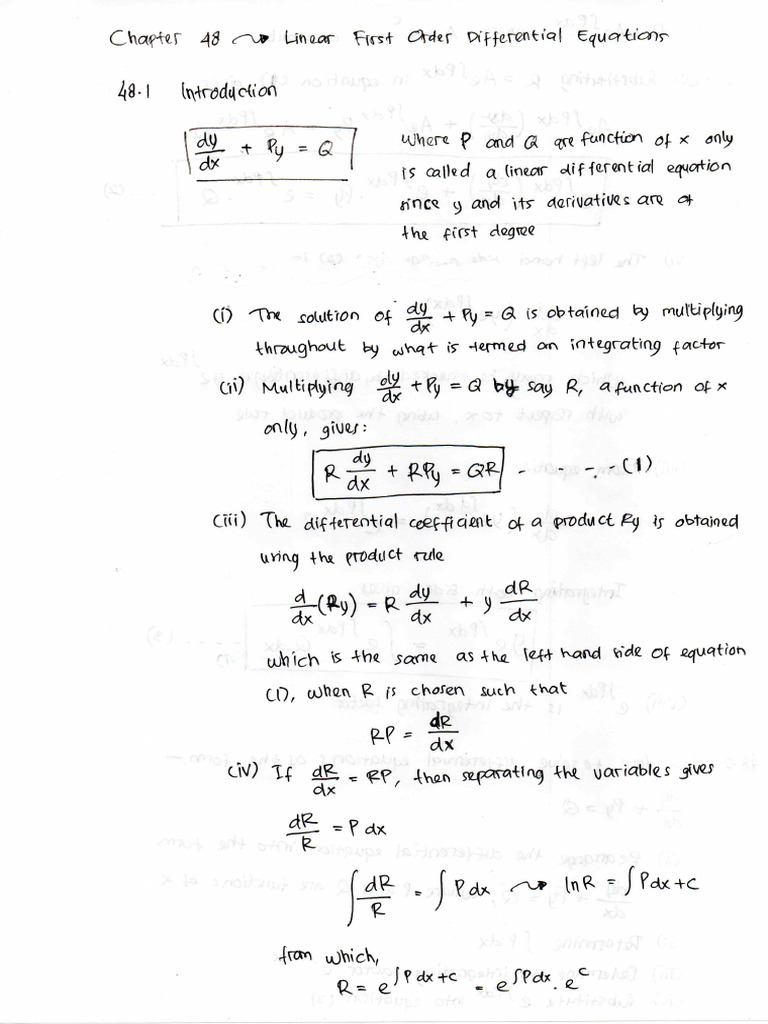 Chapter 48 ~> Linear First Order Differential Equations
48.1 Introduction
dy/dx + Py = Q
where P and Q are function of x only
is called a linear differential equation
since y and its derivatives are of
the first degree
(i) The solution of dy/dx + Py = Q is obtained by multiplying
throughout by what is termed an integrating factor
(ii) Multiplying dy/dx + Py = Q by say R, a function of x
only, gives:
R dy/dx + RPy = QR - - - - (1)
(iii) The differential coefficient of a product Ry is obtained
using the product rule
d/dx (Ry) = R dy/dx + y dR/dx
which is the same as the left hand side of equation
(1), when R is chosen such that
RP = dR/dx
(iv) If dR/dx = RP, then separating the variables gives
dR/R = P dx
∫ dR/R = ∫ P dx ~> ln R = ∫ P dx + c
from which,
R = e^(∫ P dx + c) = e^(∫ P dx) . e^c